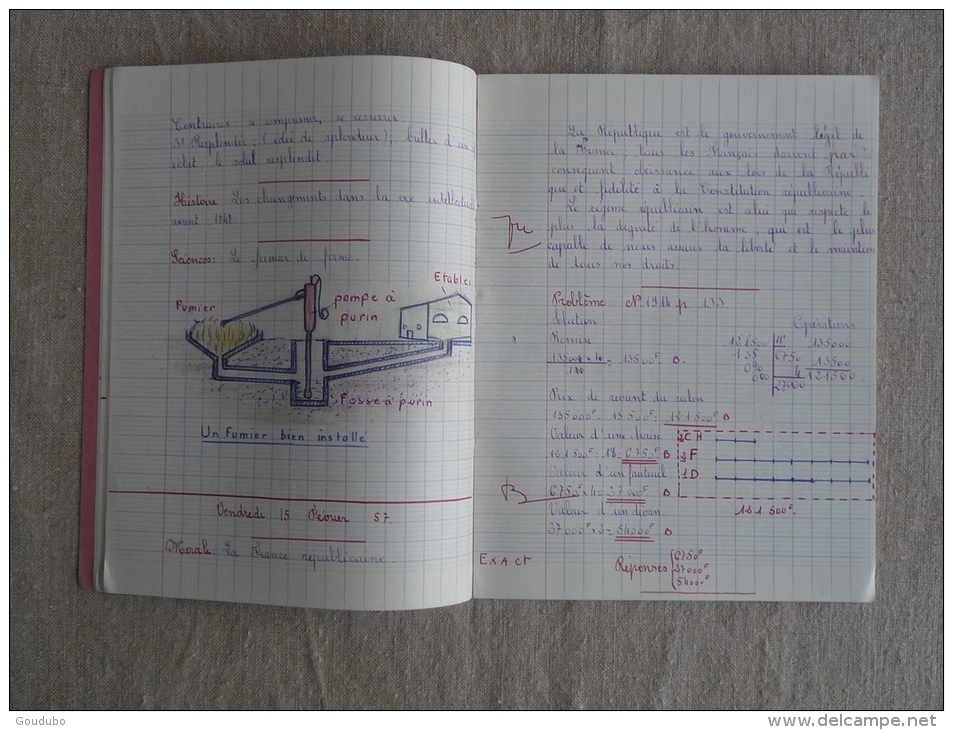 Contraires : se comprimer, se resserrer
3° Resplendir : (idée de splendeur), briller d'un
éclat, le soleil resplendit
Histoire Les changements dans la vie intellectuelle
avant 1848
Sciences : Le fumier de ferme.
Etables
Fumier
pompe à
purin
Fosse à purin
Un Fumier bien installé
Vendredi 15 Février 57.
Morale : La France républicaine.
La République est le gouvernement légal de
la France ; tous les Français doivent par
conséquent obéissance aux lois de la Républi
que et fidélité à la Constitution républicaine.
Le régime républicain est celui qui respecte le
plus la dignité de l'homme, qui est le plus
capable de nous assurer la liberté et le maintien
de tous nos droits.
Vu
Problème N° 1914 p 133
Solution
Opérations
Remise
135000 x 10 / 100 = 13500F B
121500
135
090
000
18
6750
4
27000
135000
13500
121500
Prix de revient du salon
135000F - 13500F = 121500F B
Valeur d'une chaise
121500F : 18 = 6750F B
Valeur d'un fauteuil
6750F x 4 = 27000F B
Valeur d'un divan
27000F x 2 = 54000F B
CH
F
1D
121.500F
B
Exact
Réponses
6750F
27000F
54000F
Goudubo
www.delcampe.net